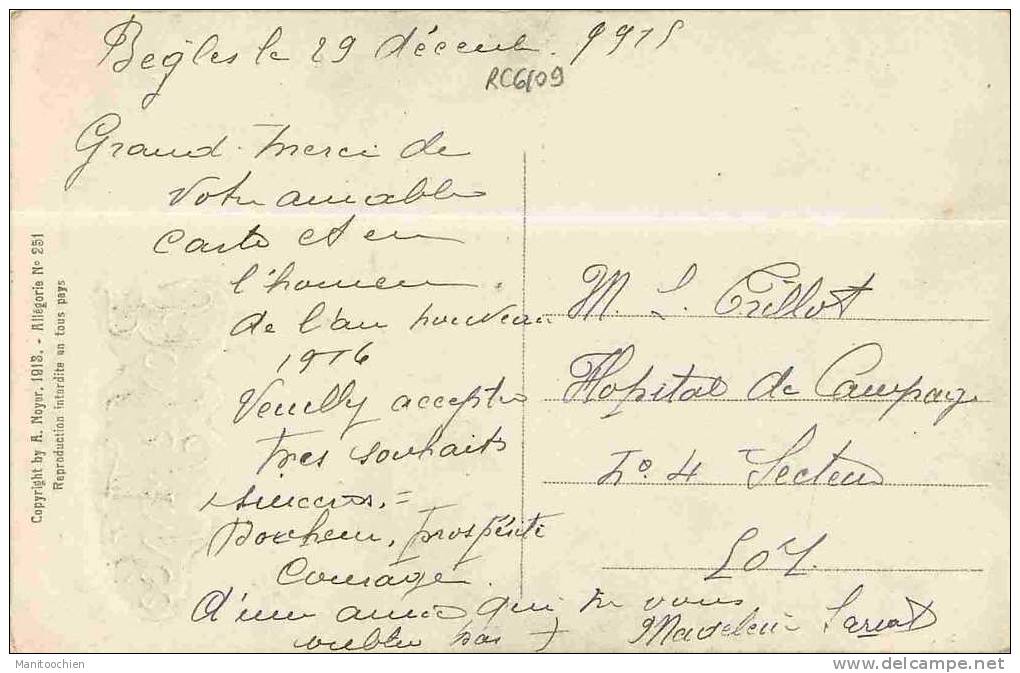 Bègles le 29 décemb. 1915
RC6/09
Grand merci de
votre aimable
carte et en
l'honneur
de l'an nouveau
1916
Veuillez accepter
mes souhaits
sincères. =
Bonheur, prospérité
Courage.
d'une amie qui ne vous
oublie pas
Madeleine
M. L. Trillot
Hôpital de Campagne
No. 4 Secteur
Copyright by A. Noyer, 1913. - Allégorie No 251
Reproduction interdite en tous pays
Manitoochien
delcampe.net